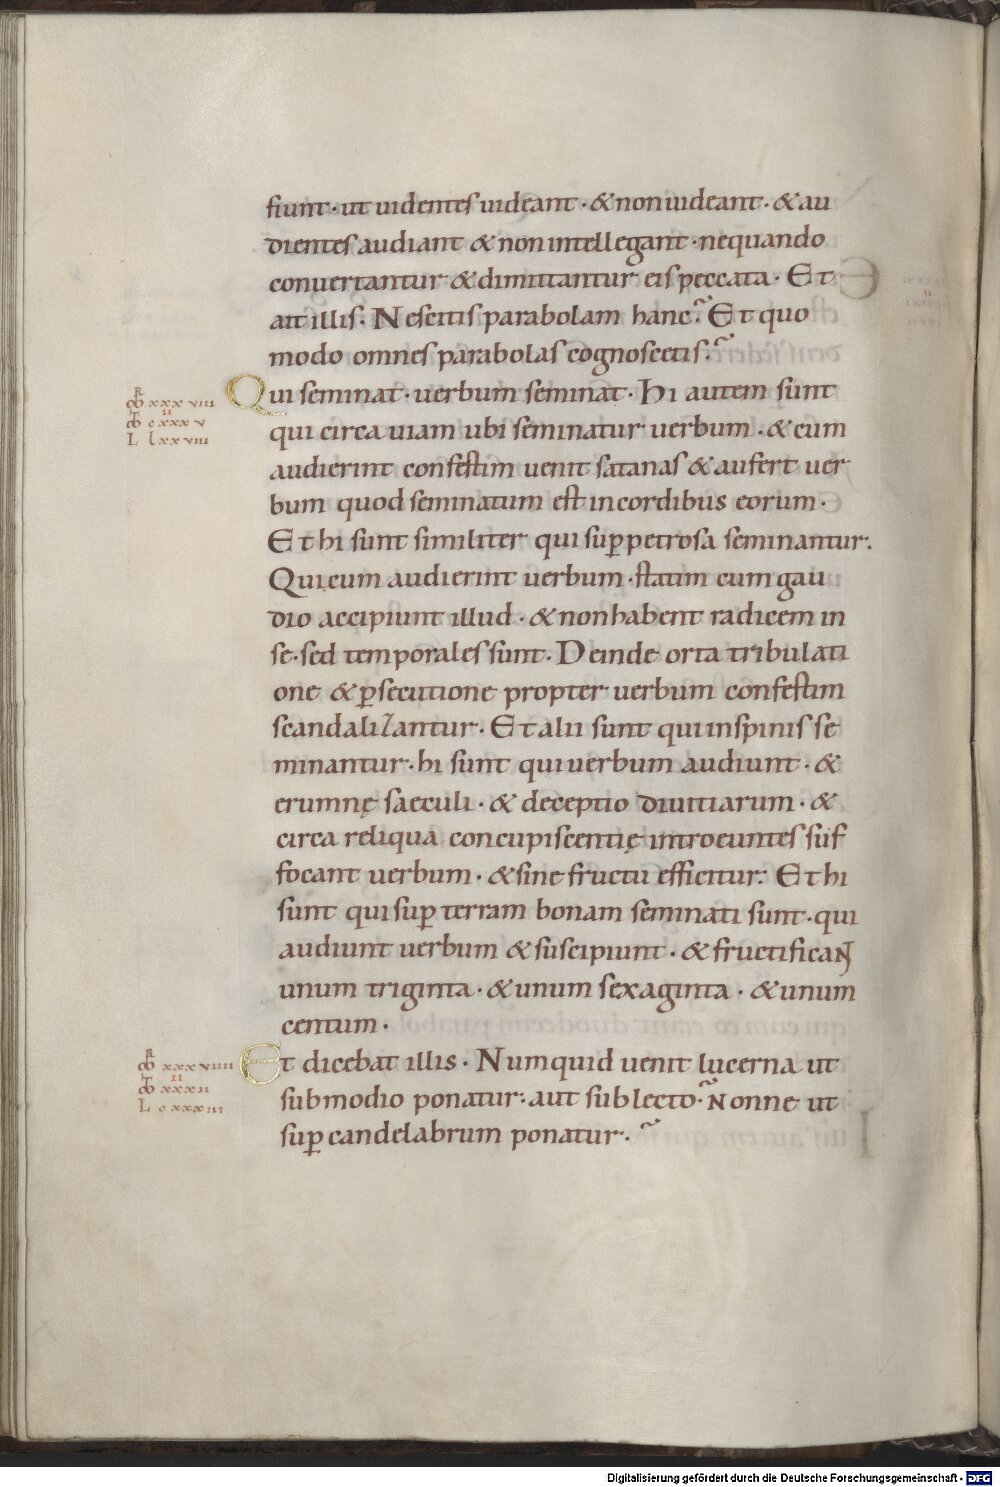 fiunt· ut uidentes uideant· & non uideant· & au
dientes audiant & non intellegant· nequando
conuertantur & dimittantur eis peccata· Et
ait illis· Nescitis parabolam hanc? Et quo
modo omnes parabolas cognoscetis?
Qui seminat· uerbum seminat· Hi autem sunt
qui circa uiam ubi seminatur uerbum· & cum
audierint confestim uenit satanas & aufert uer
bum quod seminatum est in cordibus eorum·
Et hi sunt similiter qui sup̱ petrosa seminantur·
Qui cum audierint uerbum· statim cum gau
dio accipiunt illud· & non habent radicem in
se· sed temporales sunt· Deinde orta tribulati
one & ꝑsecutione propter uerbum confestim
scandalizantur· Et alii sunt qui in spinis se
minantur· hi sunt qui uerbum audiunt· &
erumnę saeculi· & deceptio diuitiarum· &
circa reliqua concupiscentię introeuntes suf
focant uerbum· & sine fructu efficitur· Et hi
sunt qui suꝑ terram bonam seminati sunt· qui
audiunt uerbum & suscipiunt· & fructificant
unum triginta· & unum sexaginta· & unum
centum·
Et dicebat illis· Numquid uenit lucerna ut
sub modio ponatur· aut sub lecto? Nonne ut
suꝑ candelabrum ponatur?
R
xxxviii
II
cxxxv
L lxxviii
R
xxxviiii
II
xxxii
L cxxxiii
Digitalisierung gefördert durch die Deutsche Forschungsgemeinschaft - DFG